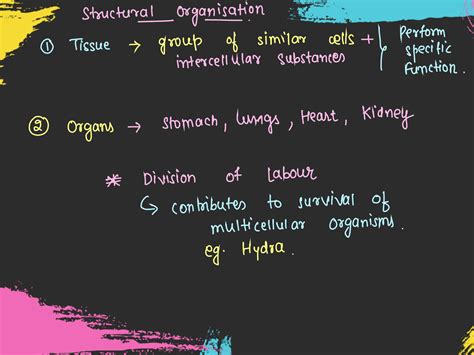 Structural Organisation
① Tissue → group of similar cells + intercellular substances { Perform specific function.
② Organs → Stomach, Lungs, Heart, Kidney
* Division of Labour
↳ contributes to survival of
multicellular organisms.
eg. Hydra.